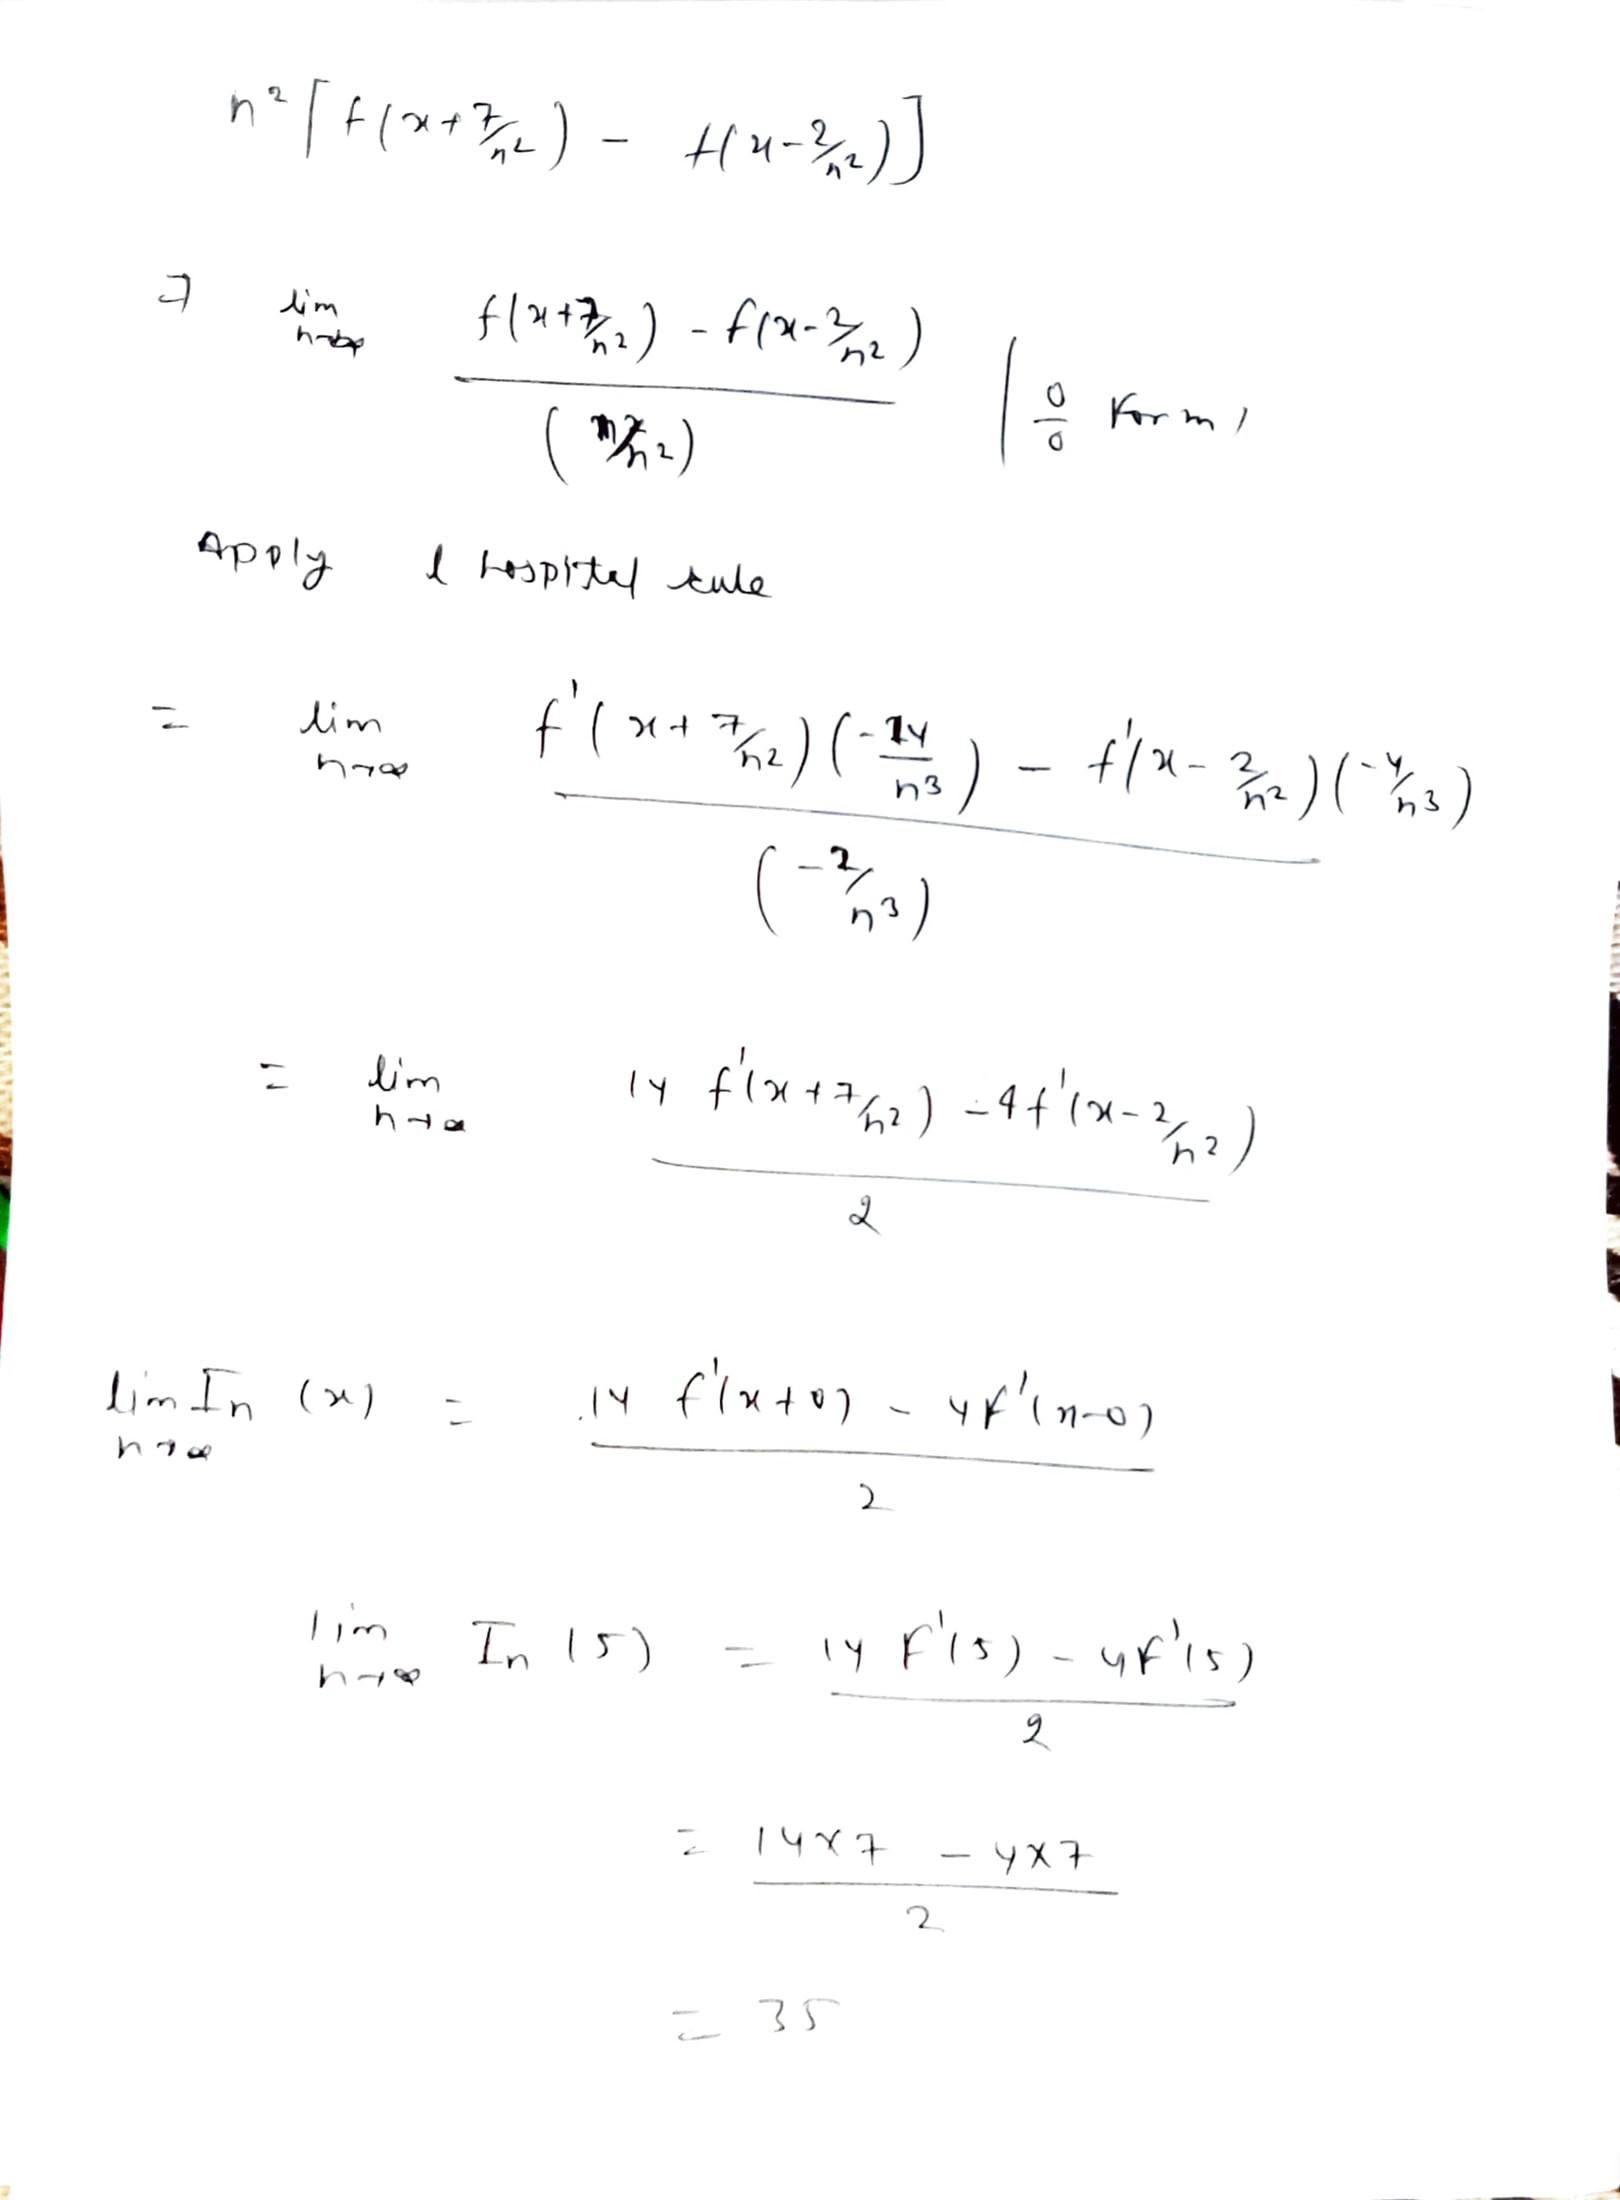 n² [ f(x+7/n²) - f(x-2/n²) ]
⇒ lim n→∞ f(x+7/n²) - f(x-2/n²) / (1/n²) ( 0/0 form )
Apply l hospital rule
= lim n→∞ f'(x+7/n²)(-14/n³) - f'(x-2/n²)(-4/n³) / (-2/n³)
= lim n→∞ 14 f'(x+7/n²) - 4f'(x-2/n²) / 2
lim n→∞ In (x) = 14 f'(x+0) - 4f'(x-0) / 2
lim n→∞ In (5) = 14 f'(5) - 4f'(5) / 2
= 14x7 - 4x7 / 2
= 35